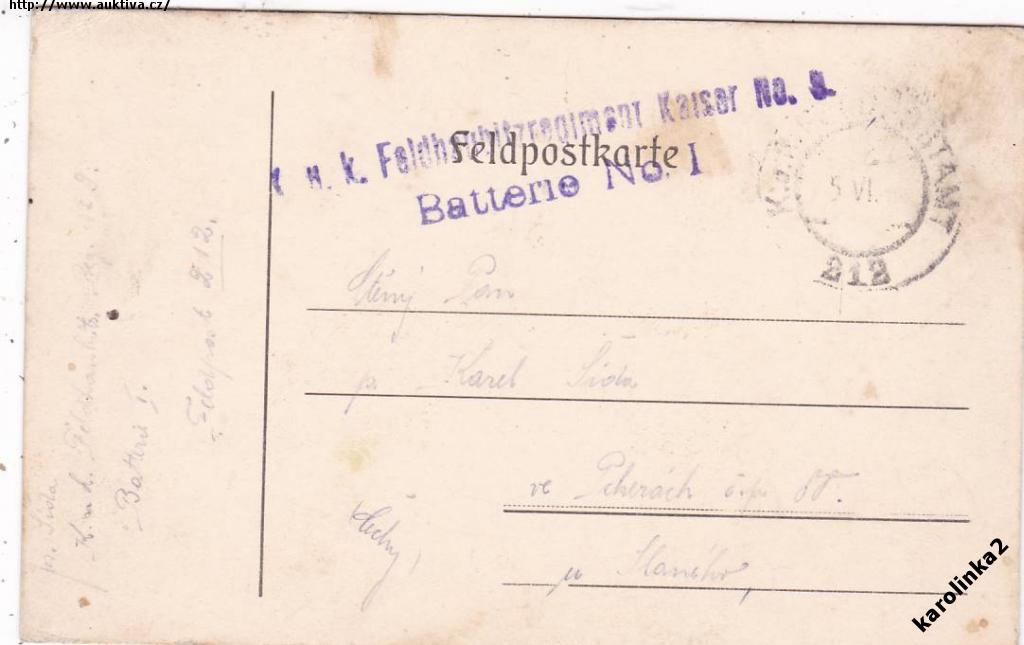 http://www.auktiva.cz/
k. u. k. Feldhaubitzregiment Kaiser No.
Feldpostkarte
Batterie No. I
5 VI.
212
Pan
p. Karel Šída
ve Pcherách čp.
u Slaného,
Čechy,
Šída
Batterie I.
Feldpost 212.
karolinka2